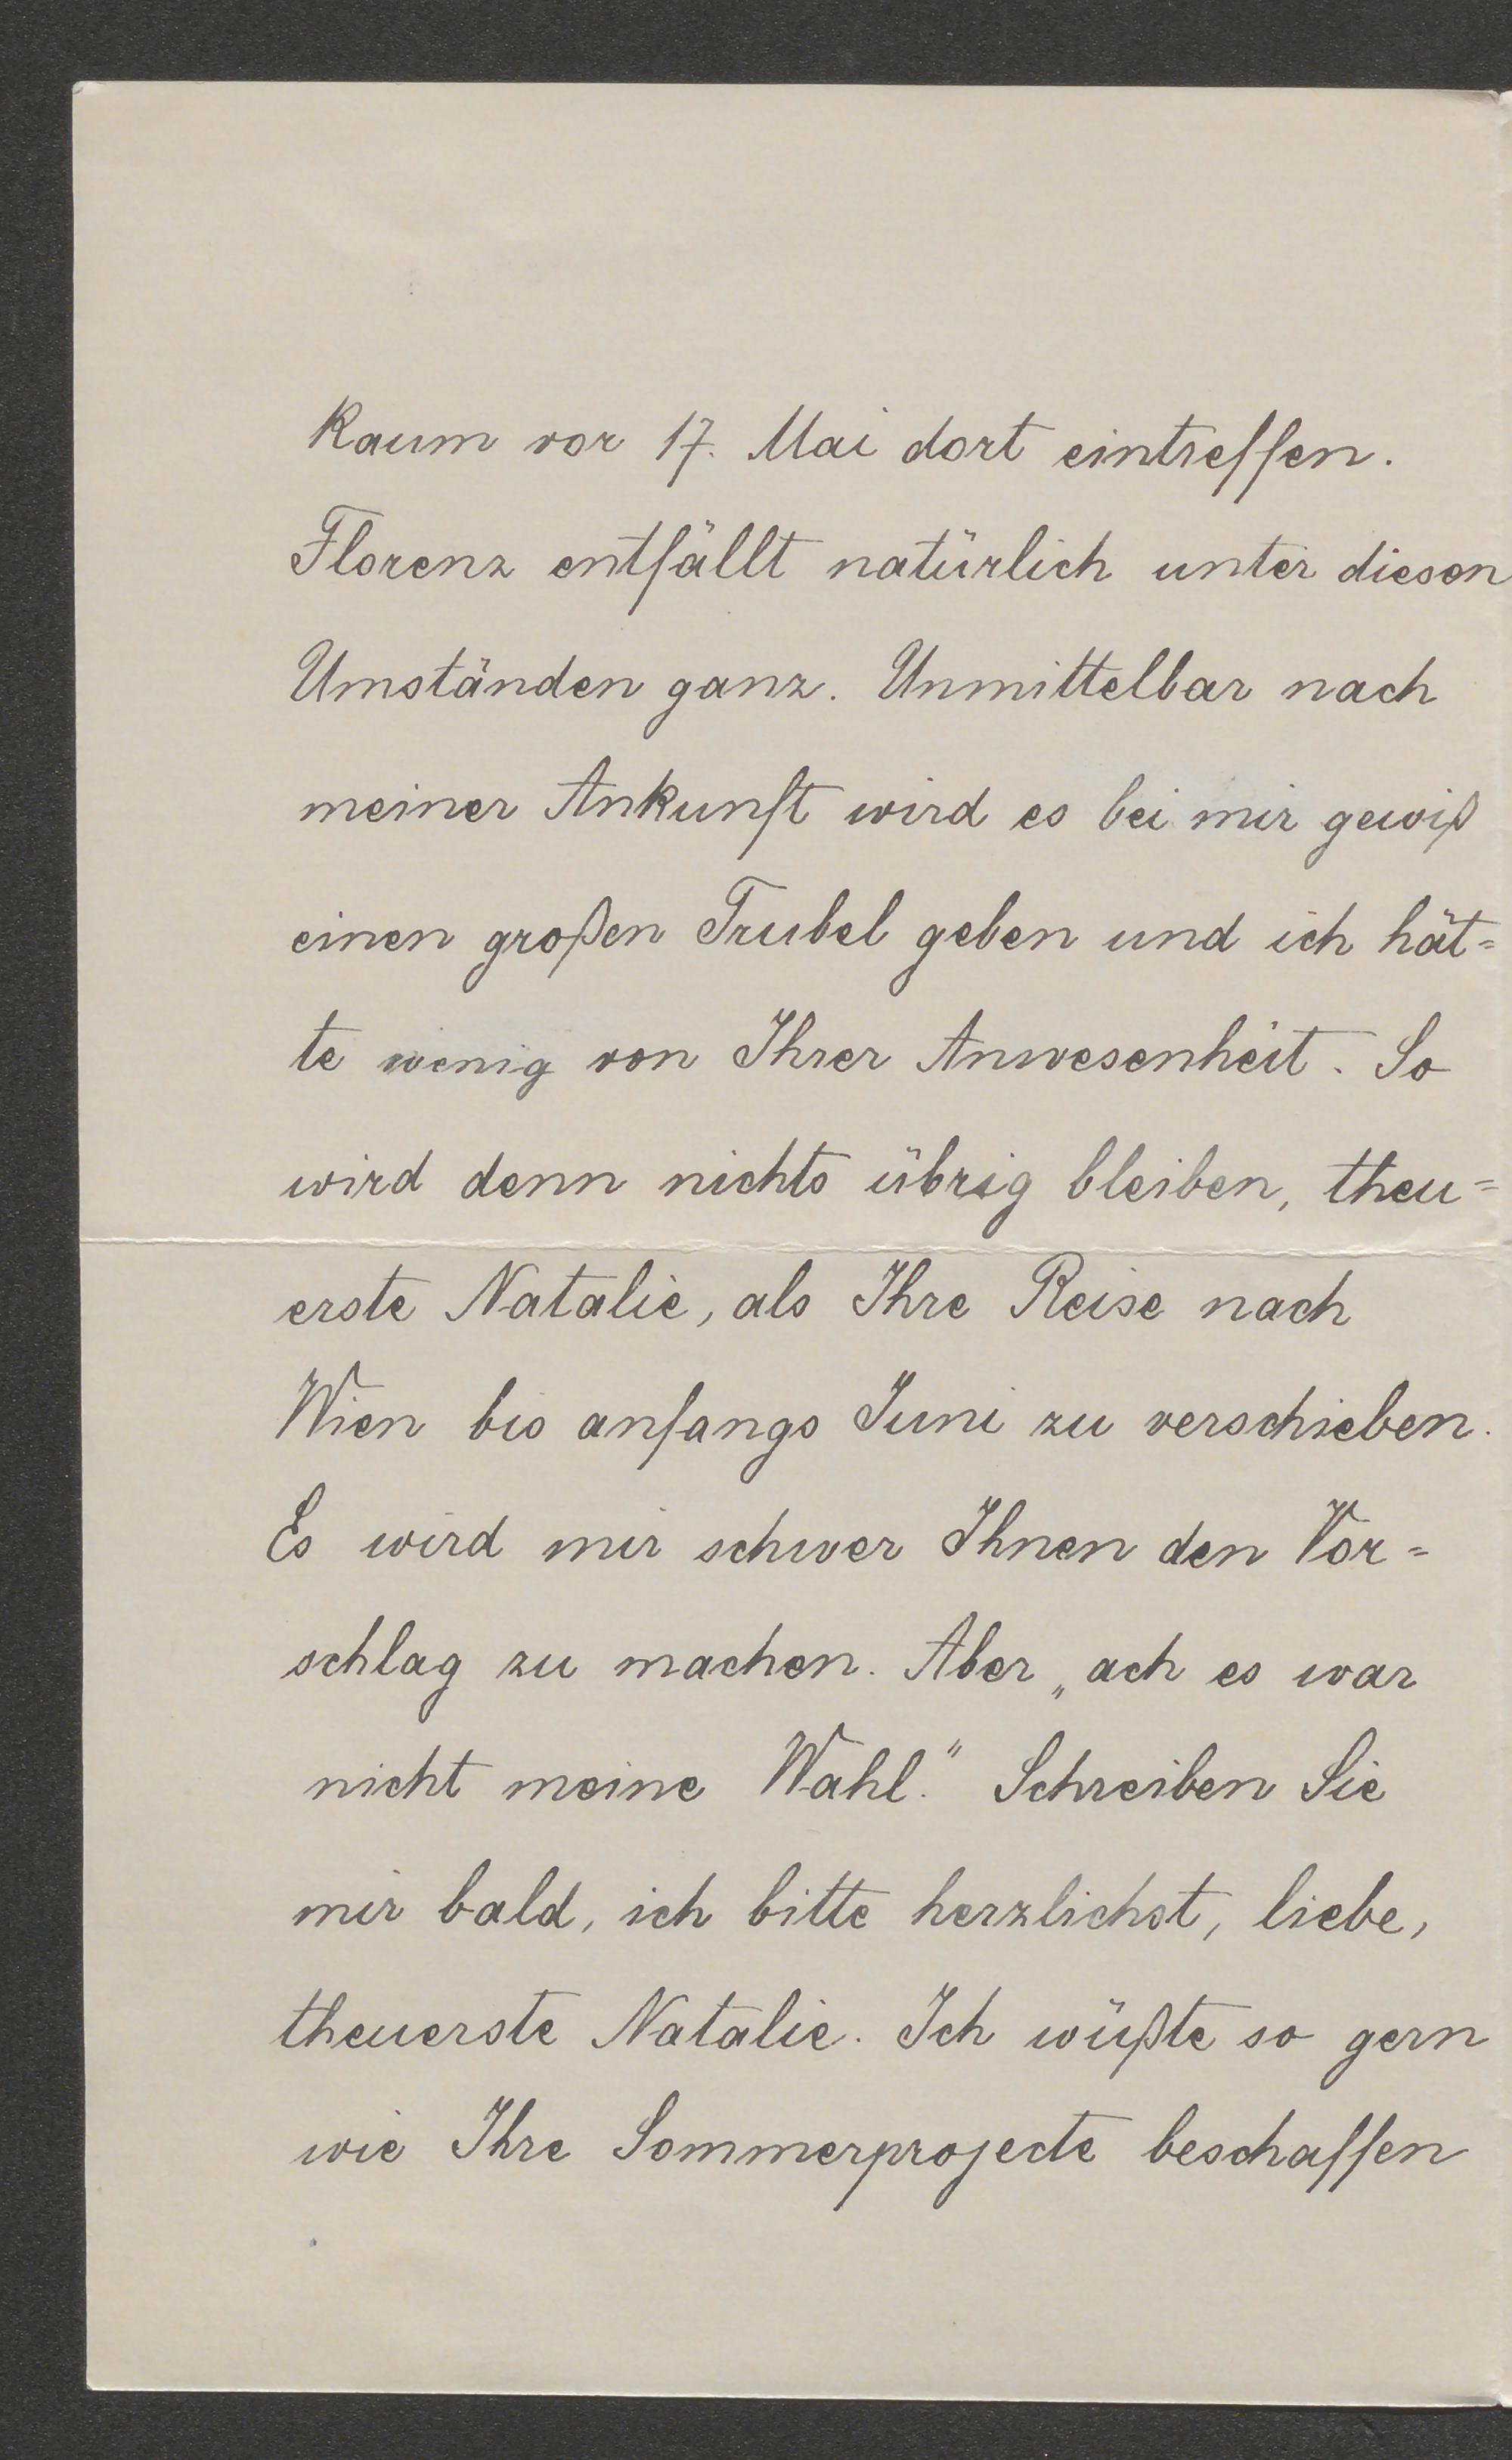 kaum vor 17. Mai dort eintreffen.
Florenz entfällt natürlich unter diesen
Umständen ganz. Unmittelbar nach
meiner Ankunft wird es bei mir gewiß
einen großen Trubel geben und ich hät=
te wenig von Ihrer Anwesenheit. So
wird denn nichts übrig bleiben, theu=
erste Natalie, als Ihre Reise nach
Wien bis anfangs Juni zu verschieben.
Es wird mir schwer Ihnen den Vor=
schlag zu machen. Aber „ach es war
nicht meine Wahl." Schreiben Sie
mir bald, ich bitte herzlichst, liebe,
theuerste Natalie. Ich wüßte so gern
wie Ihre Sommerprojecte beschaffen